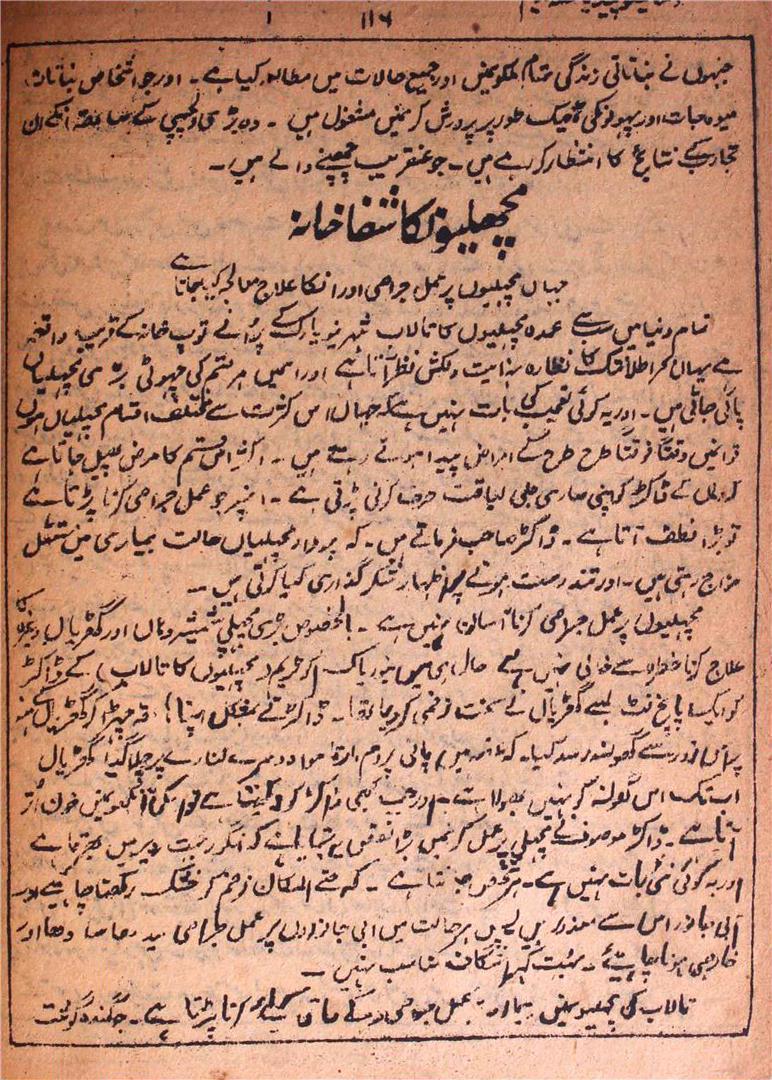 ۱۱۶
جنہوں نے نباتاتی زندگی تمام ملکونمیں اور جمیع حالات میں مطالعہ کیا ہے۔ اور جو اشخاص نباتات،
میوہ جات اور پہولونکی ٹھیک طور پر پرورش کرنمیں مشغول ہیں۔ وہ بڑی دلچسپی کے ساتھ انکے ان
تجارب کے نتایج کا انتظار کر رہے ہیں۔ جو عنقریب چھپنے والے ہیں۔
مچھلیونکا شفاخانہ
جہاں مچہلیوں پر عمل جراحی اور انکا علاج معالجہ کیا جاتا ہے
تمام دنیا میں سب سے عمدہ مچہلیوں کا تالاب شہر نیویارک کے پرانے توپ خانہ کے قریب واقعہ
ہے یہاں بحر اطلانتک کا نظارہ نہایت دلکش نظر آتا ہے اور اسمیں ہر قسم کی چہوٹی بڑی مچہلیاں
پائی جاتی ہیں۔ اور یہ کوئی تعجب کی بات نہیں ہے کہ جہاں اس کثرت سے مختلف اقسام مچہلیاں ہوں
تو انمیں وقتاً فوقتاً طرح طرح کے امراض پیدا ہوتے رہتے ہیں۔ اکثر اس قسم کا مرض پہیل جاتا ہے
کہ وہاں کے ڈاکٹر کو اپنی ساری طبی لیاقت صرف کرنی پڑتی ہے۔ انپر جو عمل جراحی کرنا پڑتا ہے
تو بڑا لطف آتا ہے۔ ڈاکٹر صاحب فرماتے ہیں۔ کہ مچہلیاں حالت بیماری میں مستقل
مزاج رہتی ہیں۔ اور تندرست ہونے پر اظہار شکرگذاری کیا کرتی ہیں۔
مچہلیوں پر عمل جراحی کرنا آسان نہیں ہے۔ بالخصوص جرسی مچہلی اور گھڑیال وغیرہ کا
علاج کرنا خطرہ سے خالی نہیں ہے حال ہی میں نیویارک (مچہلیوں کا تالاب) کے ڈاکٹر
کو ایک پانچ فٹ لمبے گھڑیال نے سخت زخمی کر دیا تھا۔ ڈاکٹر نے بمشکل اپنا ہاتھ چہڑا کر گھڑیال کے منہ
پر زور سے گھونسہ رسید کیا۔ کہ پانی پر دم مارتا ہوا دوسرے کنارے پر چلا گیا گھڑیال
اب تک اس گھونسہ کو نہیں بھولا ہے۔ اور جب کبھی ڈاکٹر کو دیکھتا ہے تو اسکی آنکھونمیں خون اتر
آتا ہے۔ ڈاکٹر موصوف نے مچہلی پر عمل کرنمیں بڑا نقص یہ بتایا ہے کہ انکا زخم بہت دیر میں بھرتا ہے
اور یہ کوئی نئی بات نہیں ہے۔ ہر شخص جانتا ہے۔ کہ حتے الامکان زخم کو خشک رکھنا چاہیے اور
آبی جانور اس سے معذور ہیں پس ہر حالت میں آبی جانوروں پر عمل جراحی سیدھا سادھا اور
خارجی ہونا چاہیئے۔ بہت گہرا شگاف مناسب نہیں۔
تالاب کی مچہلیونمیں عمل جراحی کرنا پڑتا ہے۔